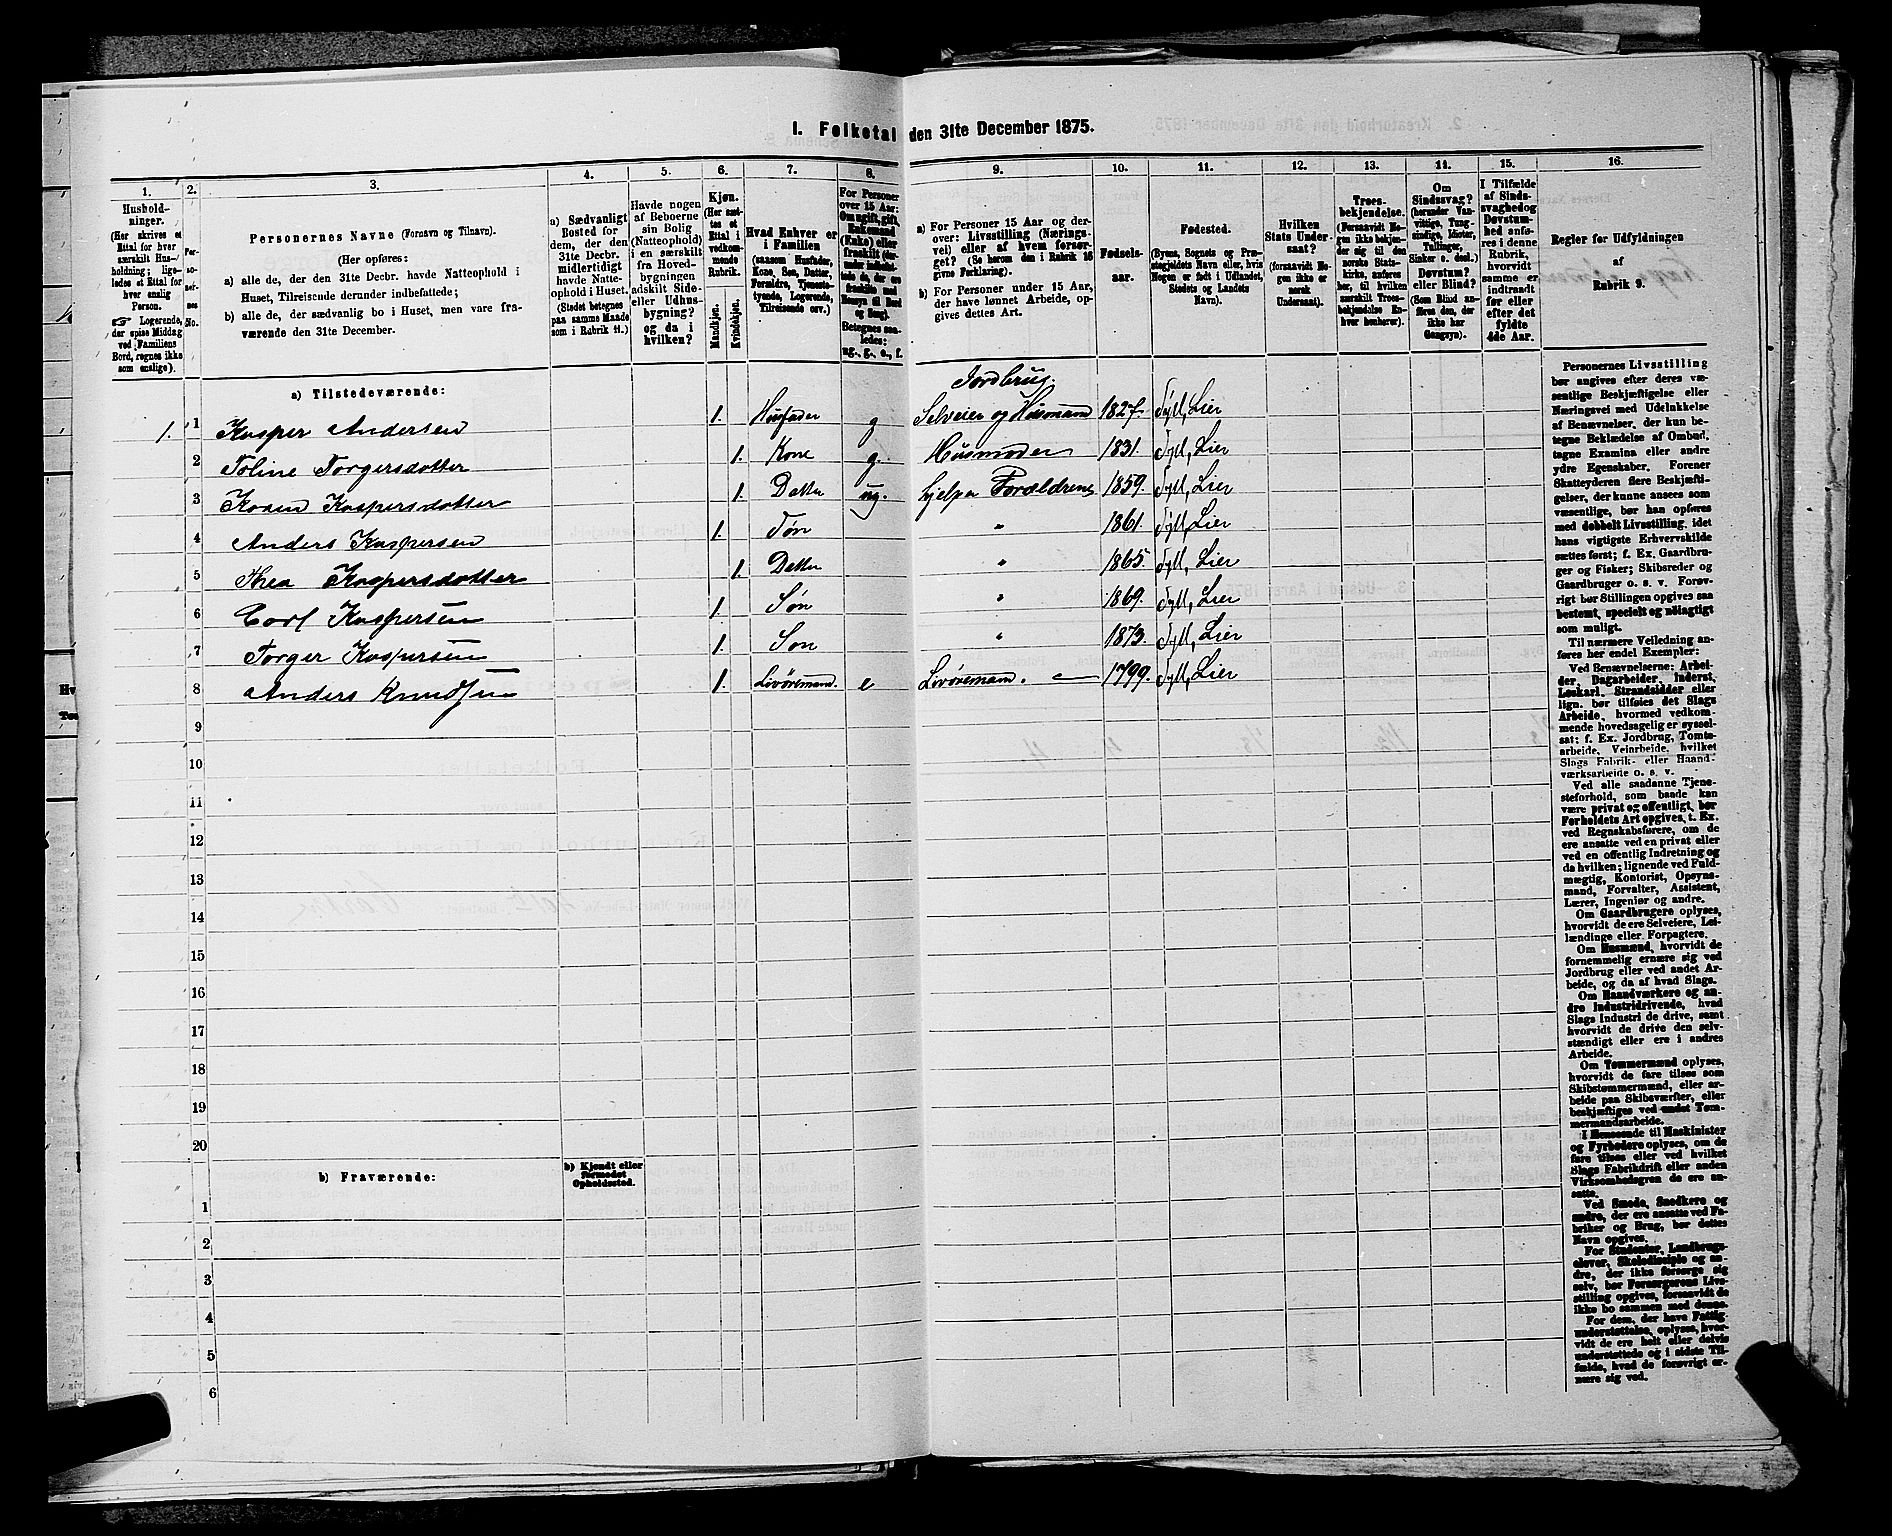 I. Folketal den 31te December 1875.
1. 2. 3. 4. 5. 6. 7. 8. 9. 10. 11. 12. 13. 14. 15. 16.
Personernes Navne (Fornavn og Tilnavn).
(Her opføres:
a) alle de, der den 31te Decbr. havde Natteophold i
Huset, Tilreisende derunder indbefattede;
b) alle de, der sædvanlig bo i Huset, men vare fra-
værende den 31te December.
a) Sædvanligt
Bosted for
dem, der den
31te Decbr.
midlertidigt
havde Natte-
ophold i Huset.
(Stedet betegnes
paa samme Maade
som i Rubrik 11.)
Havde nogen
af Beboerne
sin Bolig
(Natteophold)
i en særskilt
fra Hoved-
bygningen
adskilt Side-
eller Udhus-
bygning?
og da i
hvilken?
Kjøn.
Mandkjøn.
Kvindekjøn.
Hvad Enhver er
i Familien
(saasom Husfader,
Kone, Søn, Datter,
Forældre, Tjeneste-
tyende, Logerende,
Tilreisende osv.)
a) For Personer 15 Aar og der-
over: Livsstilling (Nærings-
vei) eller af hvem forsør-
get? (Se herom den i Rubrik 16
givne Forklaring).
b) For Personer under 15 Aar,
der have lønnet Arbeide, op-
gives dettes Art.
Fødsels-
aar.
Fødested.
(Byens, Sognets og Præ-
stegjeldets Navn eller, hvis
Nogen er født i Udlandet,
Stedets og Landets
Navn).
Hvilken
Stats Under-
saat?
(forsaavidt No-
gen ikke er
norsk
Undersaat).
Regler for Udfyldningen
af
Rubrik 9.
a) Tilstedeværende:
Jordbrug.
1. 1 Kasper Andersen 1. Husfader g Selveier og Husmand 1827. Syll, Lier
2 Toline Torgersdotter 1. Kone g. Husmoder 1831. Syll, Lier
3 Karen Kaspersdotter 1. Datter ug. hjelper Forældrene 1859. Syll, Lier
4 Anders Kaspersen 1. Søn " 1861. Syll, Lier
5 Thea Kaspersdotter 1. Datter " 1865. Syll, Lier
6 Carl Kaspersen 1. Søn " 1869. Syll, Lier
7 Torger Kaspersen 1. Søn " 1873. Syll, Lier
8 Anders Knudsen 1. Livøremand. e Livøremand. — 1799. Syll, Lier
9
10
11
12
13
14
15
16
17
18
19
20
b) Fraværende:
b) Kjendt eller
formodet
Opholdssted.
1
2
3
4
5
6
Personernes Livsstilling
bør angives efter deres væ-
sentlige Beskjæftigelse eller
Næringsvei med Udelukkelse
af Benævnelser, der kun be-
tegne Beklædelse af Ombud,
tagne Examina eller andre
ydre Egenskaber. Forener
Skatteyderen flere Beskjæfti-
gelser, der kunne ansees som
væsentlige, bør han opføres
med dobbelt Livsstilling, idet
hans vigtigste Erhvervskilde
sættes først; f. Ex. Gaardbru-
ger og Fisker; Skibsreder og
Gaardbruger o. s. v. Forøv-
rigt bør Stillingen opgives saa
bestemt, specielt og nøiagtigt
som muligt.
Til nærmere Veiledning an-
føres her endel Exempler:
Ved Benævnelserne: Arbei-
der, Dagarbeider, Inderst,
Løskarl, Strandsidder eller
lign. bør tilføies det Slags
Arbeide, hvormed vedkom-
mende hovedsagelig er syssel-
sat; f. Ex. Jordbrug, Tomte-
arbeide, Veiarbeide, hvilket
Slags Fabrik- eller Haand-
værksarbeide o. s. v.
Ved alle saadanne Tjene-
steforhold, som baade kan
være privat og offentligt, bør
Forholdets Art opgives, t. Ex.
ved Regnskabsførere, om de
ere ansatte ved en privat eller
ved en offentlig Indretning og
da hvilken; lignende ved Fuld-
mægtig, Kontorist, Opsyns-
mand, Forvalter, Assistent,
Lærer, Ingeniør og andre.
Om Gaardbrugere oplyses,
hvorvidt de ere Selveiere, Lei-
lændinge eller Forpagtere.
Om Husmænd, hvorvidt de
fornemmelig ernære sig ved
Jordbrug eller ved andet Ar-
beide, og da af hvad Slags.
Om Haandværkere og an-
dre Industridrivende, hvad
Slags Industri de drive, samt
hvorvidt de drive den selv-
stændigt eller ere i andres
Arbeide.
Om Tømmermænd oplyses,
hvorvidt de fare tilsøs som
Skibstømmermænd, eller ar-
beide paa Skibsværfter, eller
beskjæftiges ved andet Tøm-
mermandsarbeide.
I Henseende til Maskinister
og Fyrbødere oplyses, om de
fare tilsøs eller ved hvilket
Slags Fabrikdrift eller anden
Virksomhedsgren de ere an-
satte.
Ved Smede, Snedkere og
andre, der ere ansatte ved Fa-
briker og Brug, bør dettes
Navn opgives.
For Studenter, Landbrugs-
elever, Skoledisciple og an-
dre, der ikke forsørge sig
selv, bør Forsørgerens Livs-
stilling opgives, forsaavidt de
ikke bo sammen med denne.
For dem, der have Fattig-
understøttelse, oplyses, hvor-
vidt de ere helt eller delvis
understøttede og i sidste Til-
fælde, hvad de forøvrigt er-
nære sig ved.